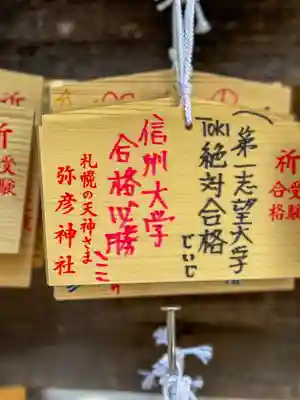 祈
受験
合格
第一志望大学
Toki 絶対合格
じいじ
信州大学
合格必勝
札幌の天神さま
弥彦神社
祈
受験